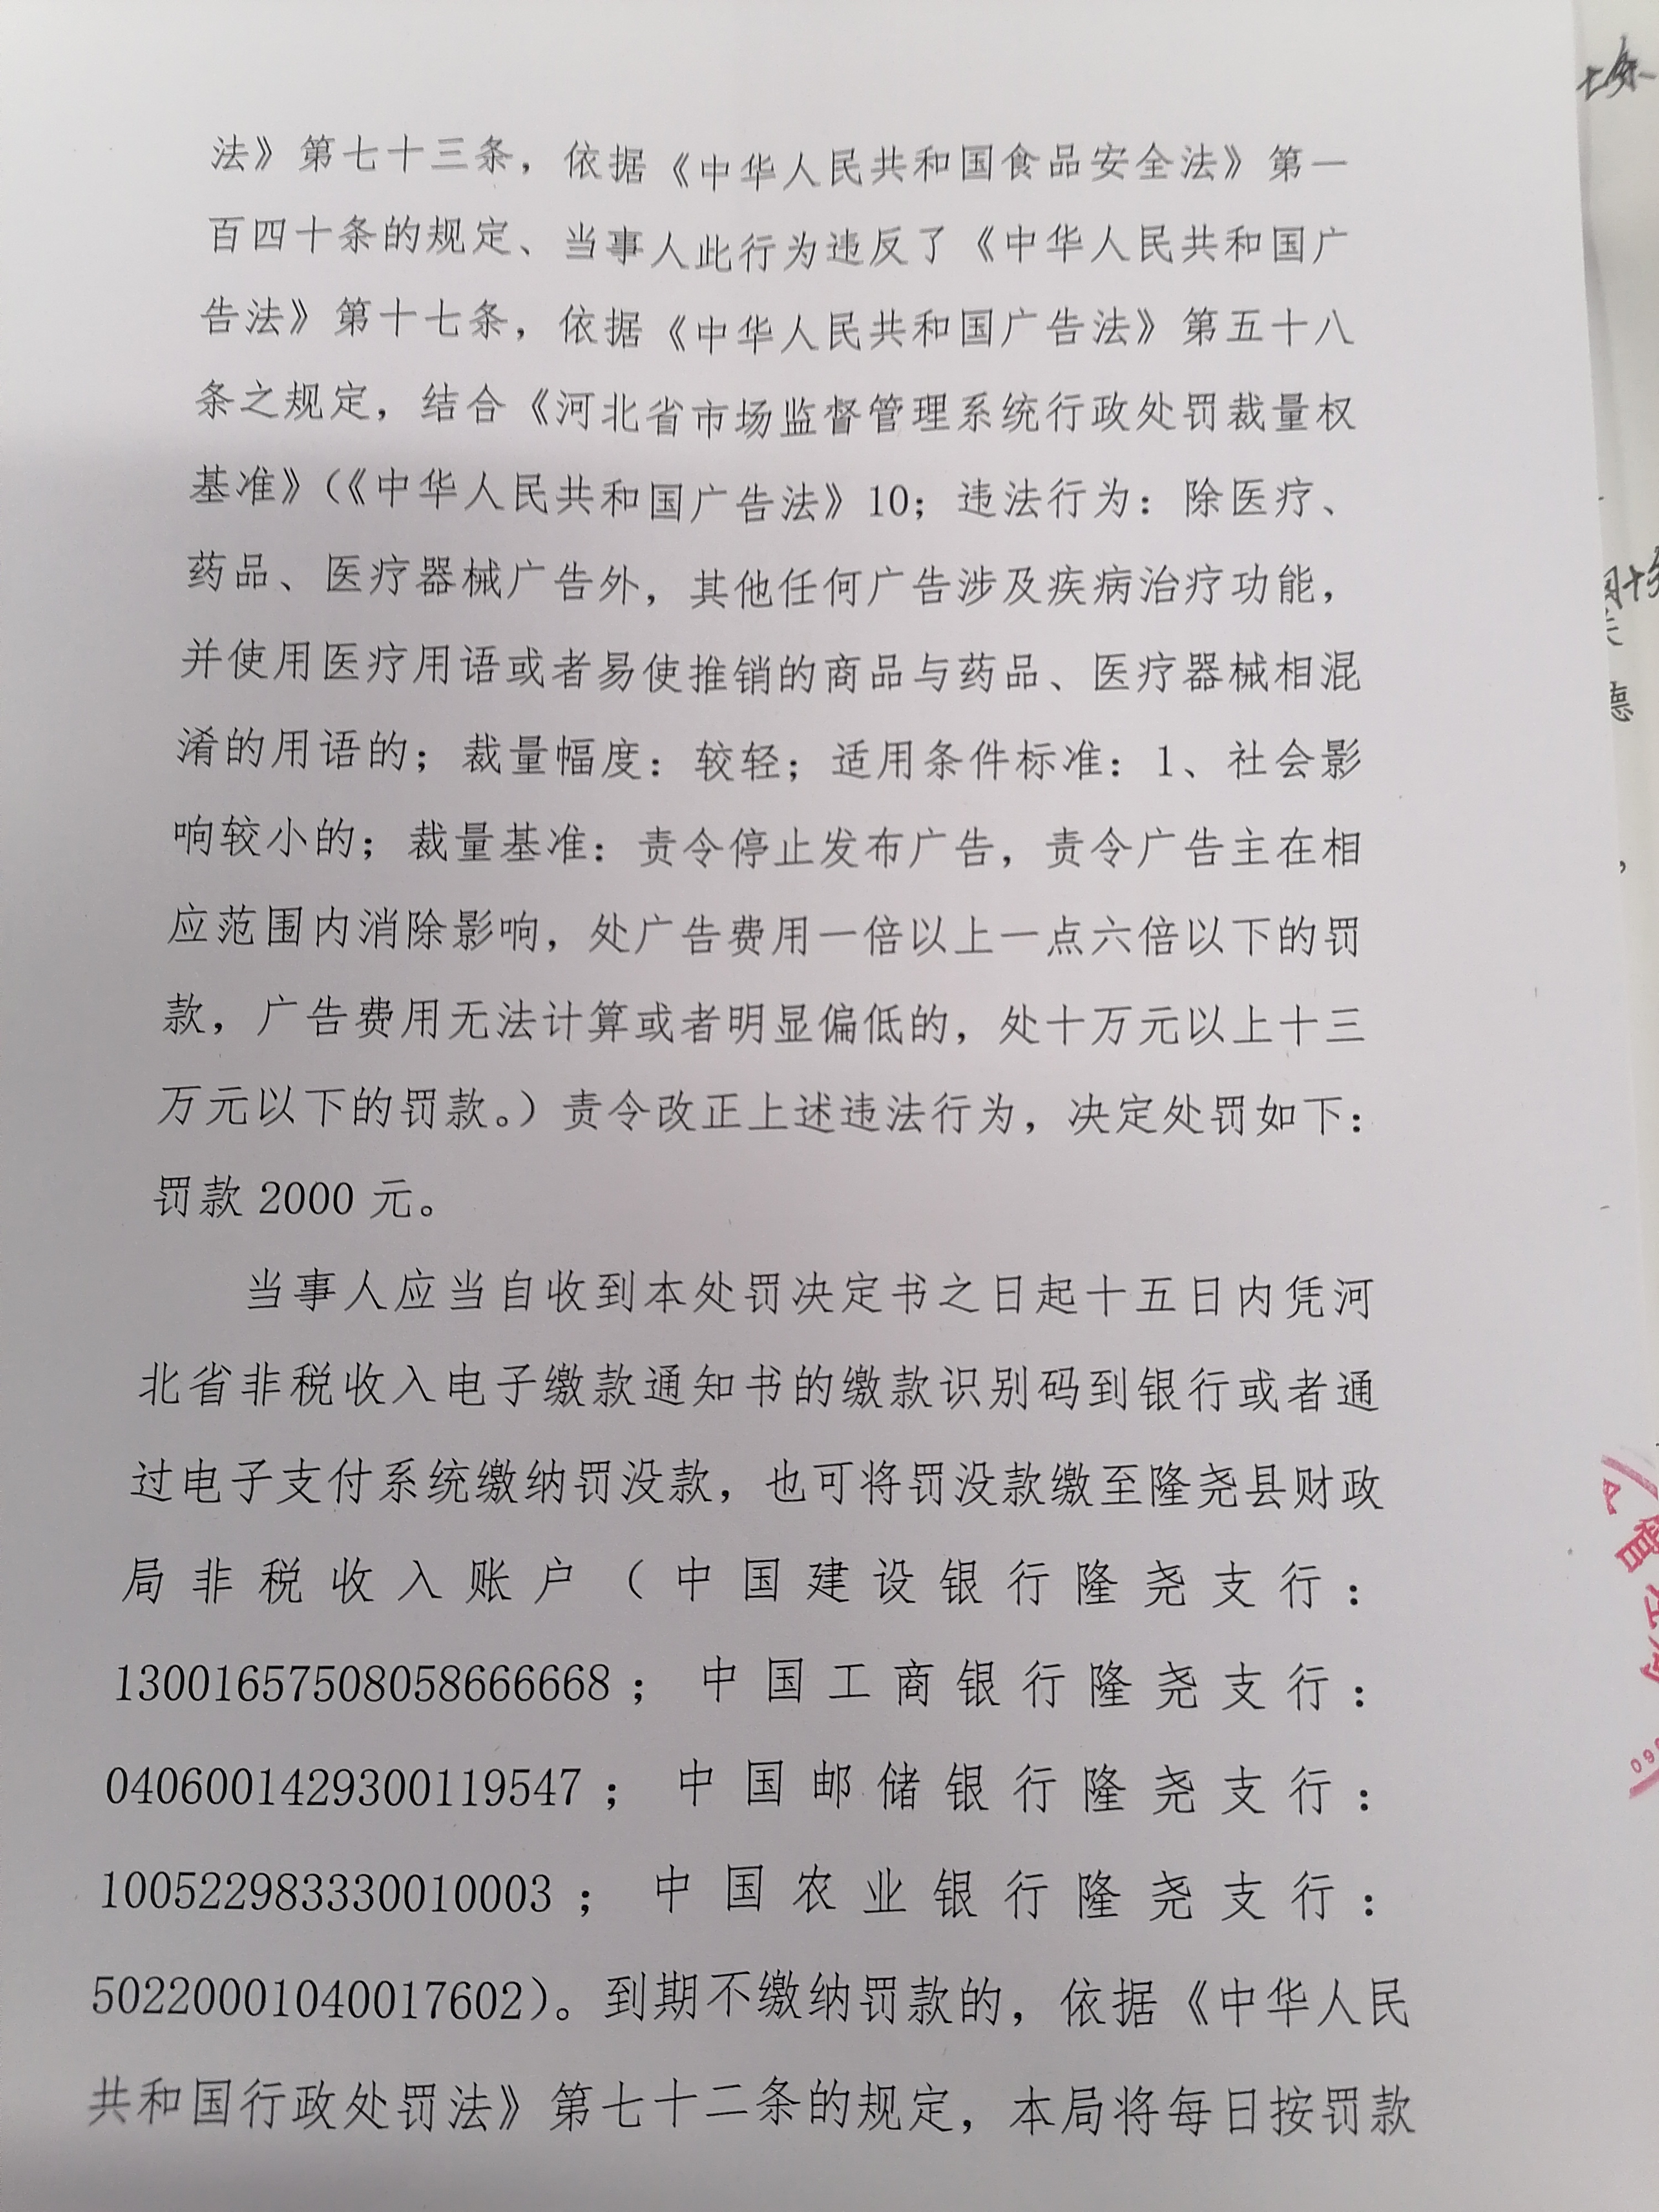 法》第七十三条，依据《中华人民共和国食品安全法》第一
百四十条的规定、当事人此行为违反了《中华人民共和国广
告法》第十七条，依据《中华人民共和国广告法》第五十八
条之规定，结合《河北省市场监督管理系统行政处罚裁量权
基准》（《中华人民共和国广告法》10；违法行为：除医疗、
药品、医疗器械广告外，其他任何广告涉及疾病治疗功能，
并使用医疗用语或者易使推销的商品与药品、医疗器械相混
淆的用语的；裁量幅度：较轻；适用条件标准：1、社会影
响较小的；裁量基准：责令停止发布广告，责令广告主在相
应范围内消除影响，处广告费用一倍以上一点六倍以下的罚
款，广告费用无法计算或者明显偏低的，处十万元以上十三
万元以下的罚款。）责令改正上述违法行为，决定处罚如下：
罚款 2000 元。
当事人应当自收到本处罚决定书之日起十五日内凭河
北省非税收入电子缴款通知书的缴款识别码到银行或者通
过电子支付系统缴纳罚没款，也可将罚没款缴至隆尧县财政
局非税收入账户（中国建设银行隆尧支行：
13001657508058666668；中国工商银行隆尧支行：
0406001429300119547；中国邮储银行隆尧支行：
100522983330010003；中国农业银行隆尧支行：
50220001040017602）。到期不缴纳罚款的，依据《中华人民
共和国行政处罚法》第七十二条的规定，本局将每日按罚款
七条
德
管